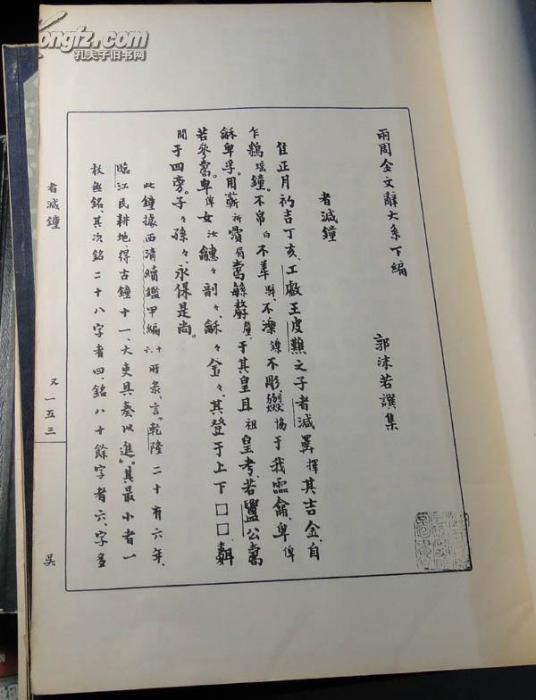 kongfz.com
孔夫子旧书网
兩周金文辭大系下編
郭沫若譔集
者減鐘
隹正月初吉丁亥、工𢾊王皮難之子者減擇其吉金、自
乍鷂鐘。不帛白不羍、不濼不彤、協于我需龠卑俾
龢卑孚。用蘄祈眉壽鯀于其皇且祖皇考、若公壽
若參壽。卑俾女汝、剖、龢、金、其登于上下□□、
聞于四旁。子々孫々、永保是尚。
此鐘據西清續鑑甲編所彔、言「乾隆二十有六年、
臨江民耕地得古鐘十一、大吏具奏以進」、其最小者一
枚無銘、其次銘二十八字者四、銘八十餘字者六、字多
者減鐘
又一五三
吳